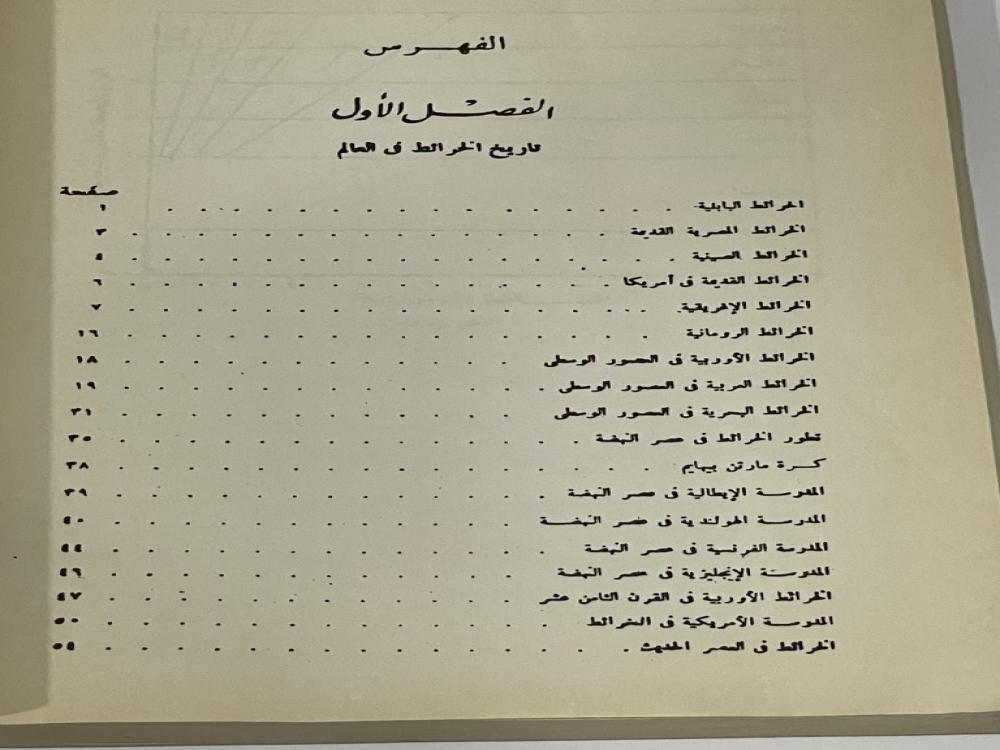 الفهرس
الفصل الأول
تاريخ الخرائط فى العالم
صفحة
الخرائط البابلية ١
الخرائط المصرية القديمة ٣
الخرائط الصينية ٤
الخرائط القديمة فى أمريكا ٦
الخرائط الإغريقية ٧
الخرائط الرومانية ١٦
الخرائط الأوربية فى العصور الوسطى ١٨
الخرائط العربية فى العصور الوسطى ١٩
الخرائط البحرية فى العصور الوسطى ٣١
تطور الخرائط فى عصر النهضة ٣٥
كرة مارتن بيهايم ٣٨
المدرسة الإيطالية فى عصر النهضة ٣٩
المدرسة الهولندية فى عصر النهضة ٤٠
المدرسة الفرنسية فى عصر النهضة ٤٤
المدرسة الإنجليزية فى عصر النهضة ٤٦
الخرائط الأوربية فى القرن الثامن عشر ٤٧
المدرسة الأمريكية فى الخرائط ٥٠
الخرائط فى العصر الحديث ٥٤